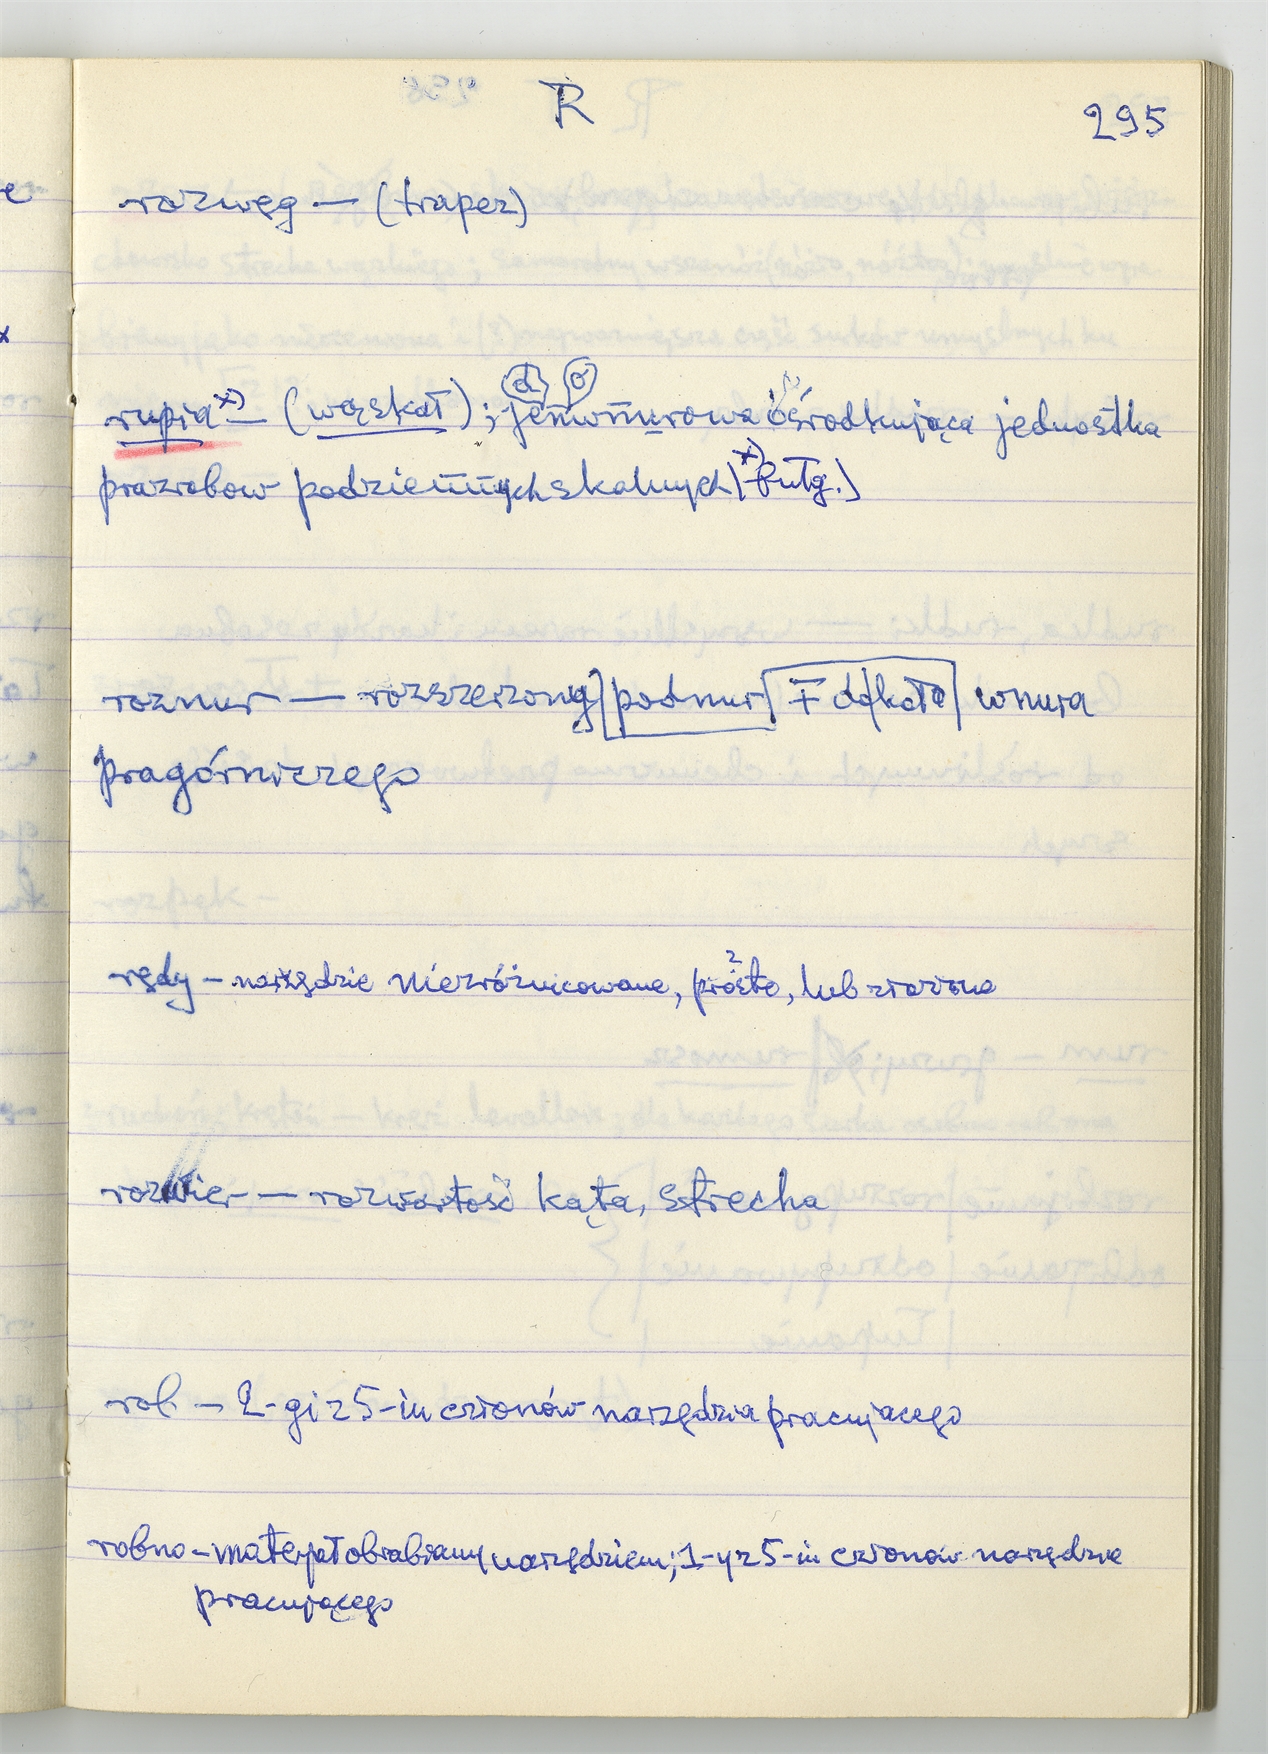 R 295
rozwęg — (trapez)
rupia x) — (wąskał); ośrodkująca jednostka
prazrobow podziemnych skalnych (x) Bułg.)
roznur — rozszerzony podnur wnura
pragórniczego
rędy – narzędzie niezróżnicowane, proste, lub
rozwier — rozwartość kąta, strzecha
rob. — 2-gi z 5-iu członów narzędzia pracującego
robno – materjał obrabiany narzędziem; 1-y z 5-iu członów narzędzia
pracującego